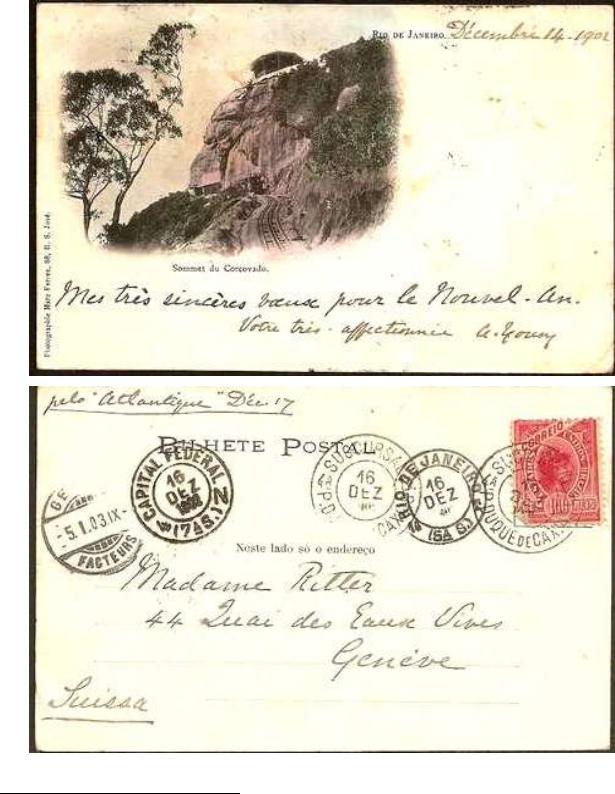 RIO DE JANEIRO. Décembre 14-1902
Photographie Marc Ferrez, 88, R. S. José.
Sommet du Corcovado.
Mes très sincères voeux pour le Nouvel-An.
Votre très-affectionnée A.
pelo "Atlantique" Déc. 17
BILHETE POSTAL
CAPITAL FEDERAL
16
DEZ
(7ªS.)
SUCCURSAL
16
DEZ
RIO DE JANEIRO
16
DEZ
(5A S.)
DUQUE DE
CORREIO
100 REIS
GE
-5.I.03.IX-
FACTEURS
Neste lado só o endereço
Madame Ritter
44 Quai des Eaux Vives
Genève
Suissa